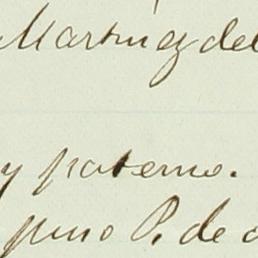 Martinez del
y paterno.
P. de